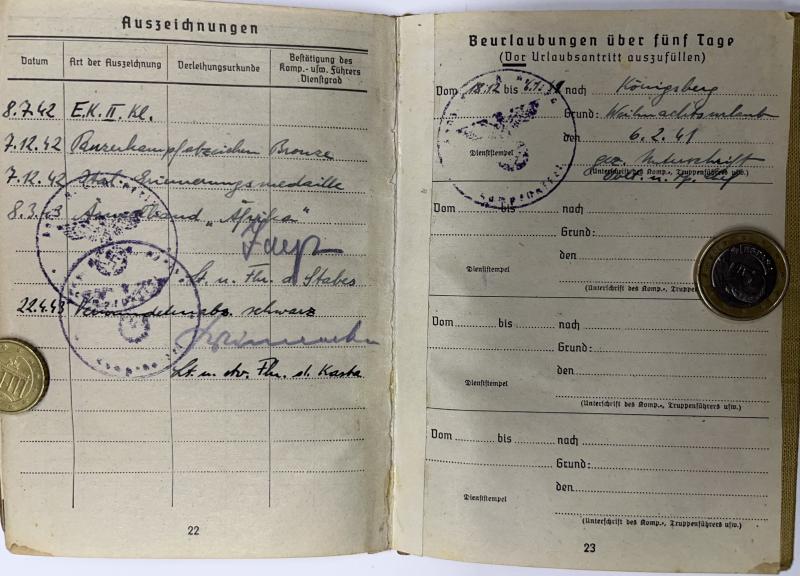 Auszeichnungen
Datum Art der Auszeichnung Verleihungsurkunde Bestätigung des Komp.- usw. Führers Dienstgrad
8.7.42 E.K. II. Kl.
7.12.42 Panzerkampfabzeichen Bronze
7.12.42 Ital. Erinnerungsmedaille
8.3.43 Ärmelband „Afrika"
Lt. u. Fhr. d. Stabes
22.4.43 Verwundetenabz. schwarz
Lt. u. stv. Fhr. d.
22
Beurlaubungen über fünf Tage
(Vor Urlaubsantritt auszufüllen)
Vom 18.12 bis nach Königsberg
Grund: Weihnachtsurlaub
den 6.2.41
Dienststempel
gez. Unterschrift
(Unterschrift des Komp.-, Truppenführers usw.)
Vom bis nach
Grund:
den
Dienststempel
(Unterschrift des Komp.-, Truppenf
Vom bis nach
Grund:
den
Dienststempel
(Unterschrift des Komp.-, Truppenführers usw.)
Vom bis nach
Grund:
den
Dienststempel
(Unterschrift des Komp.-, Truppenführers usw.)
23